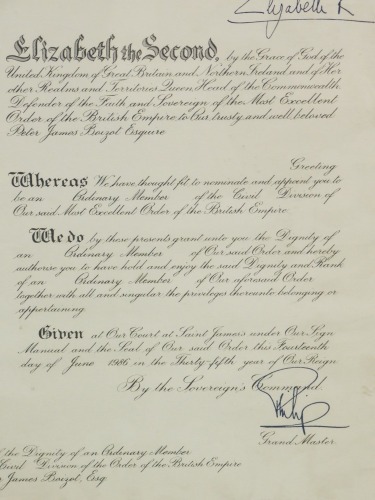 Elizabeth R
Elizabeth the Second, by the Grace of God of the
United Kingdom of Great Britain and Northern Ireland and of Her
other Realms and Territories Queen, Head of the Commonwealth,
Defender of the Faith and Sovereign of the Most Excellent
Order of the British Empire to Our trusty and well beloved
Peter James Boizot Esquire
Greeting
Whereas We have thought fit to nominate and appoint you to
be an Ordinary Member of the Civil Division of
Our said Most Excellent Order of the British Empire
We do by these presents grant unto you the Dignity of
an Ordinary Member of Our said Order and hereby
authorise you to have hold and enjoy the said Dignity and Rank
of an Ordinary Member of Our aforesaid Order
together with all and singular the privileges thereunto belonging or
appertaining.
Given at Our Court at Saint James's under Our Sign
Manual and the Seal of Our said Order this Fourteenth
day of June 1986 in the Thirty-fifth year of Our Reign.
By the Sovereign's Command.
Philip
Grand Master
the Dignity of an Ordinary Member
Civil Division of the Order of the British Empire
James Boizot, Esq.